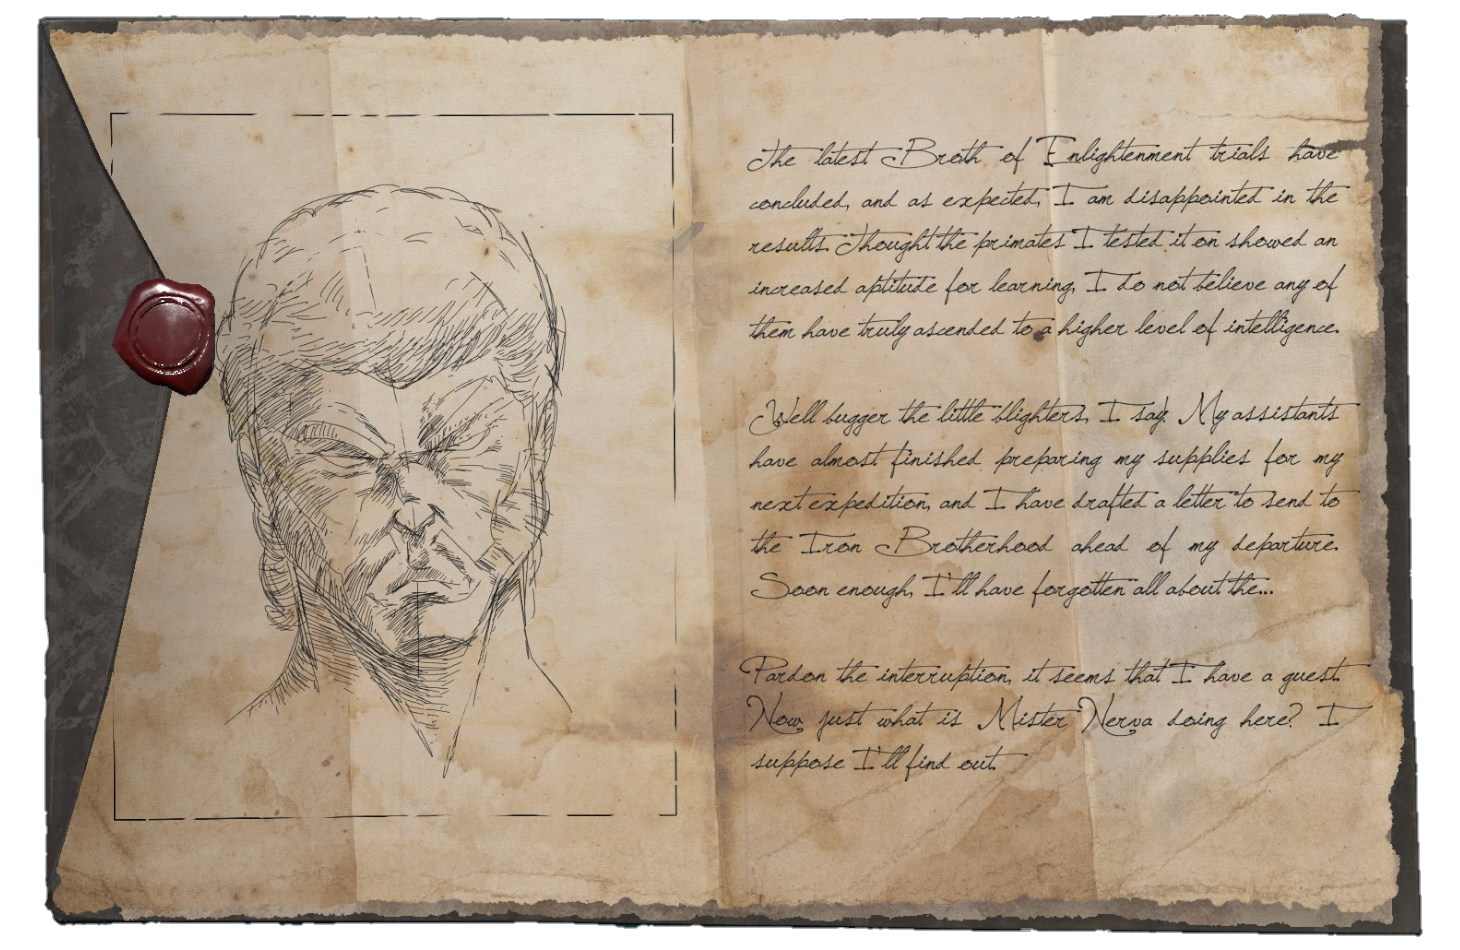 The latest Broth of Enlightenment trials have
concluded, and as expected, I am disappointed in the
results. Thought the primates I tested it on showed an
increased aptitude for learning, I do not believe any of
them have truly ascended to a higher level of intelligence.
Well bugger the little blighters, I say. My assistants
have almost finished preparing my supplies for my
next expedition, and I have drafted a letter to send to
the Iron Brotherhood ahead of my departure.
Soon enough, I'll have forgotten all about the...
Pardon the interruption, it seems that I have a guest.
Now just what is Mister Nerva doing here? I
suppose I'll find out.